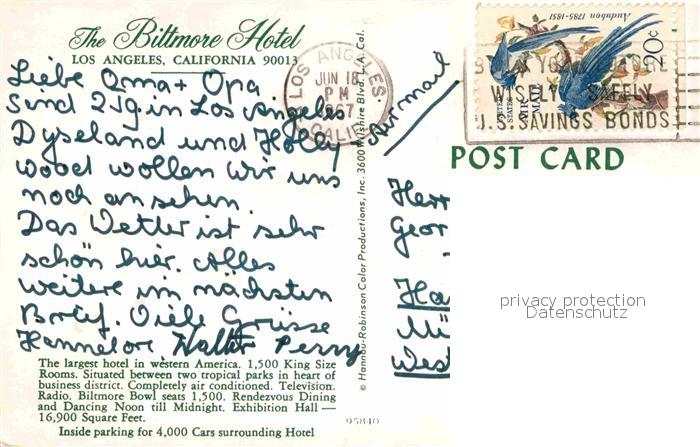 The Biltmore Hotel
LOS ANGELES, CALIFORNIA 90013
Liebe Oma + Opa
Sind 2 Tg. in Los Angeles
Dyseland und Holly
wood wollen wir uns
noch ansehen.
Das Wetter ist sehr
schön hier. Alles
weitere im nächsten
Brief. Viele Grüsse
Hannelore Walter Perry
The largest hotel in western America. 1,500 King Size
Rooms. Situated between two tropical parks in heart of
business district. Completely air conditioned. Television.
Radio. Biltmore Bowl seats 1,500. Rendezvous Dining
and Dancing Noon till Midnight. Exhibition Hall —
16,900 Square Feet.
Inside parking for 4,000 Cars surrounding Hotel
© Hannau-Robinson Color Productions, Inc. 3600 Wilshire Blvd. L.A. Cal.
95840
LOS ANGELES
JUN 18
PM
1967
CALIF
Airmail
Audubon 1785-1851
20¢
UNITED STATES
AIR MAIL
WISELY SAFELY
U.S. SAVINGS BONDS
POST CARD
Herr
Geor
Ha
Mü
West
privacy protection
Datenschutz